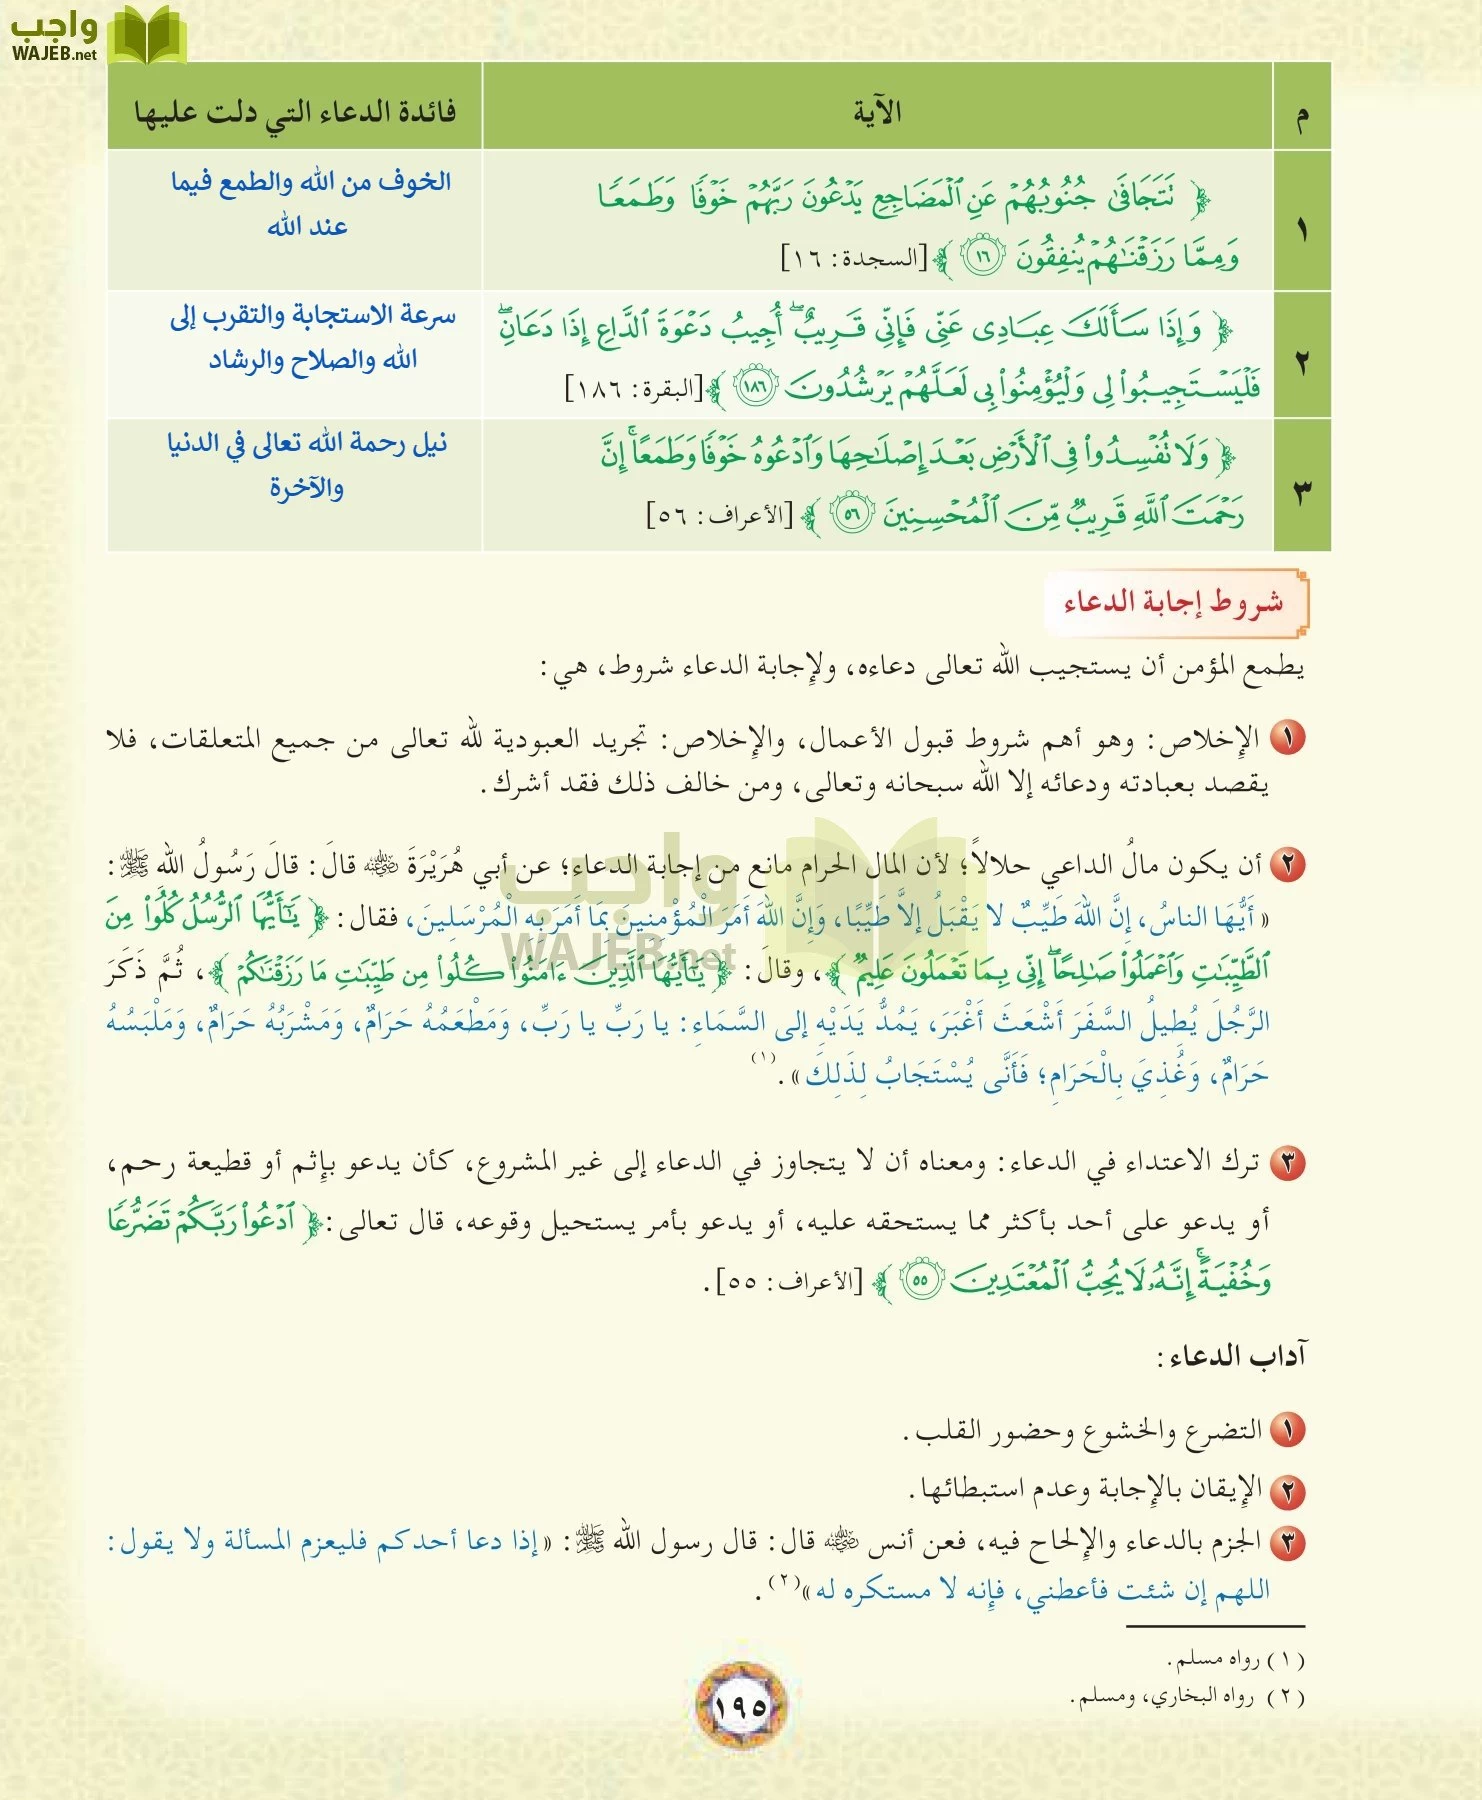 واجب
WAJEB.net
م	الآية	فائدة الدعاء التي دلت عليها
١
﴿ نَتَجَافَىٰ جُنُوبُهُمْ عَنِ ٱلْمَضَاجِعِ يَدْعُونَ رَبَّهُمْ خَوْفًا وَطَمَعًا
وَمِمَّا رَزَقْنَٰهُمْ يُنفِقُونَ ١٦ ﴾ [السجدة: ١٦]
الخوف من الله والطمع فيما
عند الله
٢
﴿ وَإِذَا سَأَلَكَ عِبَادِى عَنِّى فَإِنِّى قَرِيبٌ ۖ أُجِيبُ دَعْوَةَ ٱلدَّاعِ إِذَا دَعَانِ ۖ
فَلْيَسْتَجِيبُوا۟ لِى وَلْيُؤْمِنُوا۟ بِى لَعَلَّهُمْ يَرْشُدُونَ ١٨٦ ﴾ [البقرة: ١٨٦]
سرعة الاستجابة والتقرب إلى
الله والصلاح والرشاد
٣
﴿ وَلَا نُفْسِدُوا۟ فِى ٱلْأَرْضِ بَعْدَ إِصْلَٰحِهَا وَٱدْعُوهُ خَوْفًا وَطَمَعًا ۚ إِنَّ
رَحْمَتَ ٱللَّهِ قَرِيبٌ مِّنَ ٱلْمُحْسِنِينَ ٥٦ ﴾ [الأعراف: ٥٦]
نيل رحمة الله تعالى في الدنيا
والآخرة
شروط إجابة الدعاء
يطمع المؤمن أن يستجيب الله تعالى دعاءه، ولإجابة الدعاء شروط، هي:
١ الإخلاص: وهو أهم شروط قبول الأعمال، والإخلاص: تجريد العبودية لله تعالى من جميع المتعلقات، فلا
يقصد بعبادته ودعائه إلا الله سبحانه وتعالى، ومن خالف ذلك فقد أشرك.
٢ أن يكون مالُ الداعي حلالاً؛ لأن المال الحرام مانع من إجابة الدعاء؛ عن أبي هُرَيْرَةَ رضي الله عنه قالَ: قالَ رَسُولُ الله ﷺ:
« أَيُّهَا الناسُ، إِنَّ اللهَ طَيِّبٌ لا يَقْبَلُ إلاَّ طَيِّبًا، وَإِنَّ اللهَ أَمَرَ الْمُؤْمِنِينَ بِمَا أَمَرَ بِهِ الْمُرْسَلِينَ، فقال: ﴿ يَٰٓأَيُّهَا ٱلرُّسُلُ كُلُوا۟ مِنَ
ٱلطَّيِّبَٰتِ وَٱعْمَلُوا۟ صَٰلِحًا ۖ إِنِّى بِمَا تَعْمَلُونَ عَلِيمٌ ﴾، وقالَ: ﴿ يَٰٓأَيُّهَا ٱلَّذِينَ ءَامَنُوا۟ كُلُوا۟ مِن طَيِّبَٰتِ مَا رَزَقْنَٰكُمْ ﴾، ثُمَّ ذَكَرَ
الرَّجُلَ يُطِيلُ السَّفَرَ أَشْعَثَ أَغْبَرَ، يَمُدُّ يَدَيْهِ إلى السَّمَاءِ: يا رَبِّ يا رَبِّ، وَمَطْعَمُهُ حَرَامٌ، وَمَشْرَبُهُ حَرَامٌ، وَمَلْبَسُهُ
حَرَامٌ، وَغُذِيَ بِالْحَرَامِ؛ فَأَنَّى يُسْتَجَابُ لِذَلِكَ ». (١)
٣ ترك الاعتداء في الدعاء: ومعناه أن لا يتجاوز في الدعاء إلى غير المشروع، كأن يدعو بإثم أو قطيعة رحم،
أو يدعو على أحد بأكثر مما يستحقه عليه، أو يدعو بأمر يستحيل وقوعه، قال تعالى: ﴿ ٱدْعُوا۟ رَبَّكُمْ تَضَرُّعًا
وَخُفْيَةً ۚ إِنَّهُۥ لَا يُحِبُّ ٱلْمُعْتَدِينَ ٥٥ ﴾ [الأعراف: ٥٥].
آداب الدعاء:
١ التضرع والخشوع وحضور القلب.
٢ الإيقان بالإجابة وعدم استبطائها.
٣ الجزم بالدعاء والإلحاح فيه، فعن أنس رضي الله عنه قال: قال رسول الله ﷺ: « إذا دعا أحدكم فليعزم المسألة ولا يقول:
اللهم إن شئت فأعطني، فإنه لا مستكره له »(٢).
(١) رواه مسلم.
(٢) رواه البخاري، ومسلم.
١٩٥
واجب
WAJEB.net